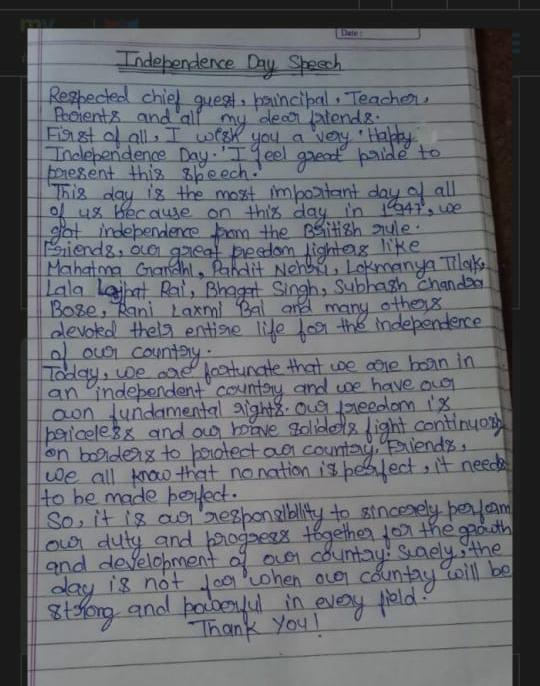 my
Date :
Independence Day Speech
Respected chief guest, principal, Teacher,
Parents and all my dear friends.
First of all, I wish you a very 'Happy
Independence Day.' I feel great pride to
present this speech.
This day is the most important day of all
of us because on this day in 1947, we
got independence from the British rule.
Friends, our great freedom fighters like
Mahatma Gandhi, Pandit Nehru, Lokmanya Tilak,
Lala Lajpat Rai, Bhagat Singh, Subhash Chandra
Bose, Rani Laxmi Bai and many others
devoted their entire life for the independence
of our country.
Today, we are fortunate that we are born in
an independent country and we have our
own fundamental rights. our freedom is
priceless and our brave soliders fight continuosly
on borders to protect our country. Friends,
we all know that no nation is perfect, it needs
to be made perfect.
So, it is our responsibility to sincerely perform
our duty and progress together for the growth
and development of our country. Surely, the
day is not far when our country will be
strong and powerful in every field.
Thank You!